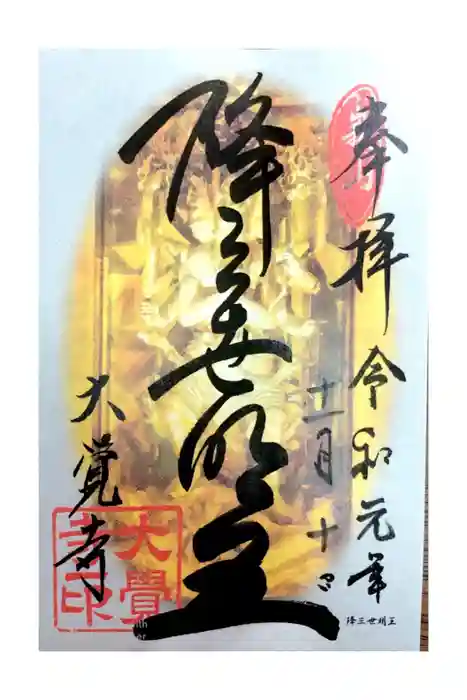 奉拝
令和元年
十一月十日
降三世明王
大覚寺
大覺寺印
降三世明王